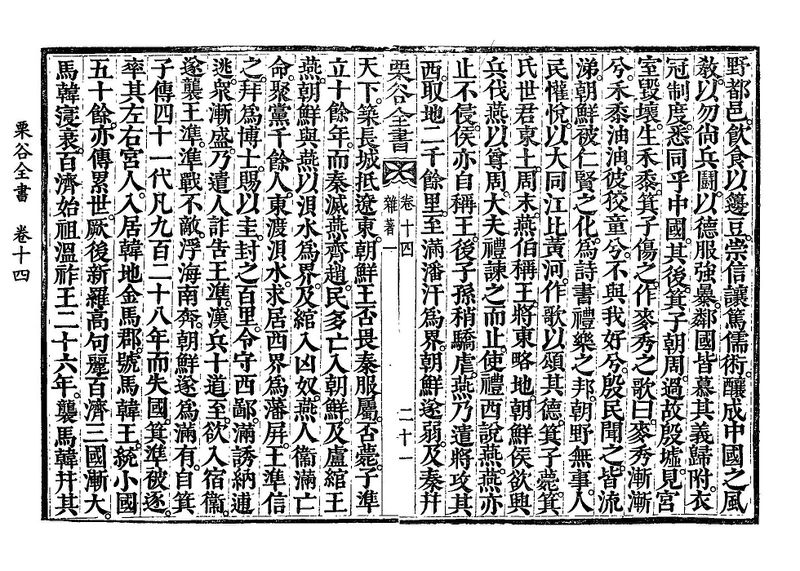 野都邑。飮食以籩豆。崇信讓篤儒術。釀成中國之風
敎。以勿尙兵鬪。以德服強暴。鄰國皆慕其義歸附。衣
冠制度。悉同乎中國。其後。箕子朝周。過故殷墟。見宮
室毀壞。生禾黍。箕子傷之。作麥秀之歌曰。麥秀漸漸
兮。禾黍油油。彼狡童兮。不與我好兮。殷民聞之。皆流
涕。朝鮮被仁賢之化。爲詩書禮樂之邦。朝野無事。人
民懽悅。以大同江比黃河。作歌以頌其德。箕子薨。箕
氏世君東土。周末。燕伯稱王。將東略地。朝鮮侯欲興
兵伐燕以尊周。大夫禮諫之而止。使禮西說燕。燕亦
止不侵。侯亦自稱王。後子孫稍驕虐。燕乃遣將攻其
西。取地二千餘里。至滿潘汗爲界。朝鮮遂弱。及秦幷
栗谷全書 卷十四 雜著一 二十一
天下。築長城抵遼東。朝鮮王否畏秦服屬。否薨。子準
立十餘年。而秦滅。燕齊趙民多亡入朝鮮。及盧綰王
燕。朝鮮與燕以浿水爲界。及綰入凶奴。燕人衞滿亡
命。聚黨千餘人。東渡浿水。求居西界爲藩屛。王準信
之。拜爲博士。賜以圭。封之百里。令守西鄙。滿誘納逋
逃。衆漸盛。乃遣人詐告王準。漢兵十道至。欲入宿衞。
遂襲王準。準戰不敵。浮海南奔。朝鮮遂爲滿有。自箕
子傳四十一代。凡九百二十八年而失國。箕準被逐。
率其左右宮人。入居韓地金馬郡。號馬韓王。統小國
五十餘。亦傳累世。厥後新羅高句麗百濟三國漸大。
馬韓寖衰。百濟始祖溫祚王二十六年。襲馬韓幷其
栗谷全書 卷十四